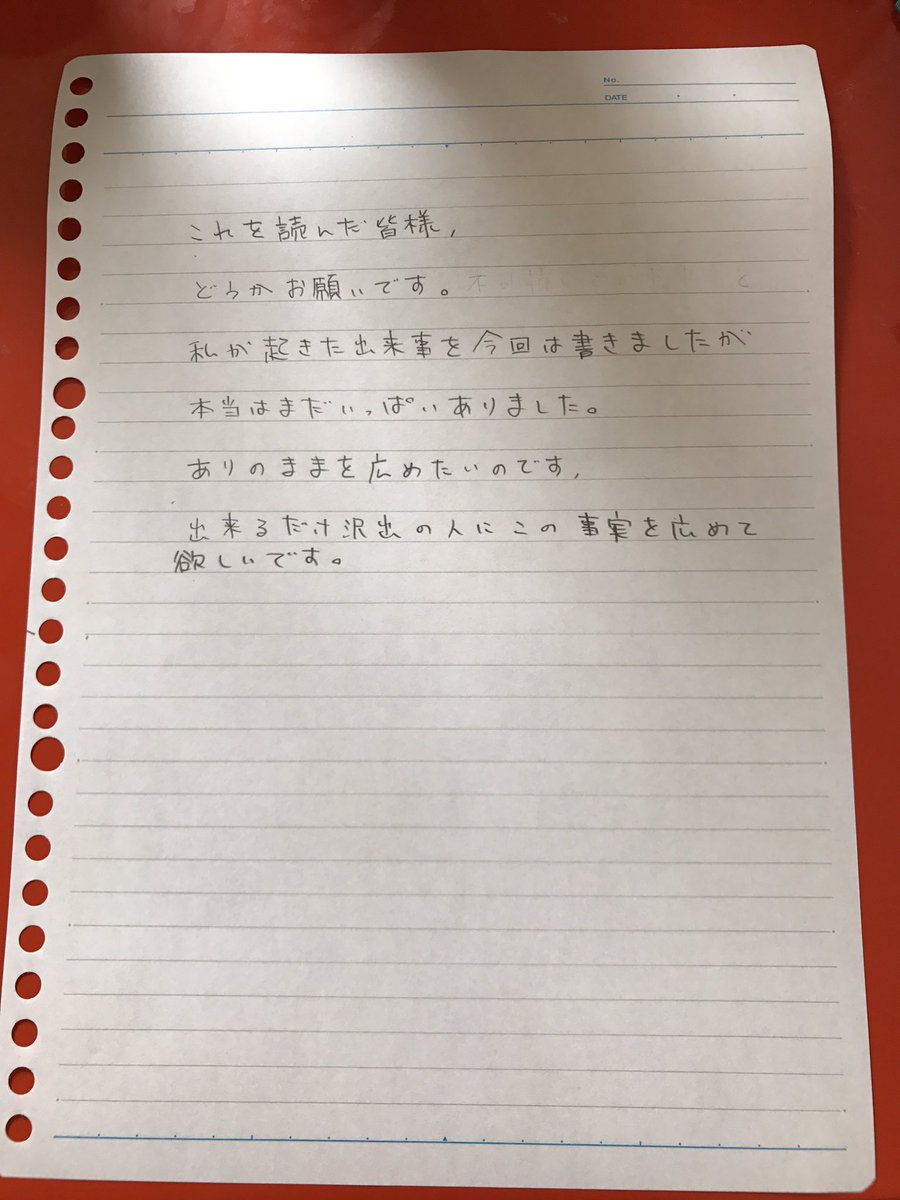 No.
DATE
これを読んだ皆様,
どうかお願いです。
私が起きた出来事を今回は書きましたが
本当はまだいっぱいありました。
ありのままを広めたいのです,
出来るだけ沢出の人にこの事実を広めて
欲しいです。